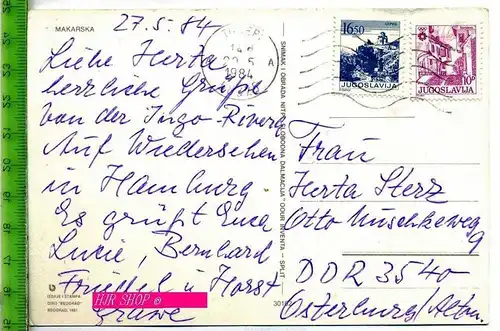 MAKARSKA
27.5.84
Liebe Herta
herzliche Grüße
von der Jugo-Riviera
Auf Wiedersehen
in Hamburg.
Es grüßt Euch
Lucie, Bernhard
Friedel u Horst
Grawe
1984
A
16,50
JUGOSLAVIJA
10
JUGOSLAVIJA
Frau
Herta Sterz
Otto Nuschkeweg
9
DDR 3540
Osterburg/Altm.
SNIMAK I OBRADA NITRO "SLOBODNA DALMACIJA" OOUR REVENTA – SPLIT
IZDAJE I ŠTAMPA
BEOGRAD, 1981
HJR SHOP ©